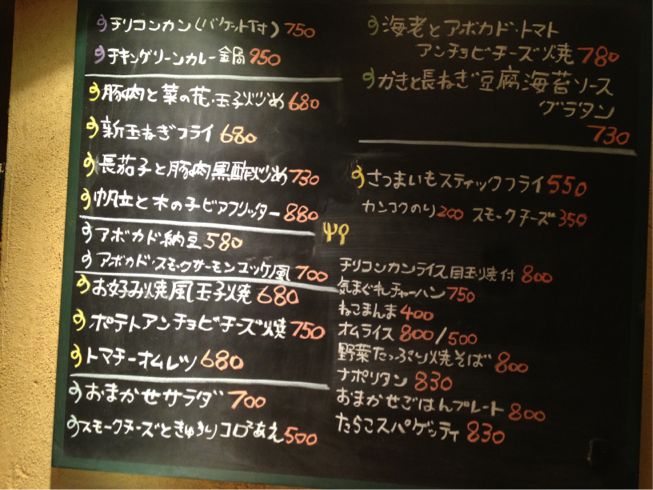 チリコンカン(バケット付) 750
チキングリーンカレー鍋 950
豚肉と菜の花・玉子炒め 680
新玉ねぎフライ 680
長茄子と豚肉黒酢炒め 730
帆立と木の子ビアフリッター 880
アボカド納豆 580
アボカド・スモークサーモンユッケ風 700
お好み焼風玉子焼 680
ポテトアンチョビチーズ焼 750
トマチーオムレツ 680
おまかせサラダ 700
スモークチーズときゅうりコロコロあえ 500
海老とアボカド・トマト
アンチョビチーズ焼 780
かきと長ねぎ豆腐海苔ソース
グラタン
730
さつまいもスティックフライ 550
カンコクのり 200 スモークチーズ 350
チリコンカンライス目玉焼付 800
気まぐれチャーハン 750
ねこまんま 400
オムライス 800/500
野菜たっぷり焼そば 800
ナポリタン 830
おまかせごはんプレート 800
たらこスパゲッティ 830